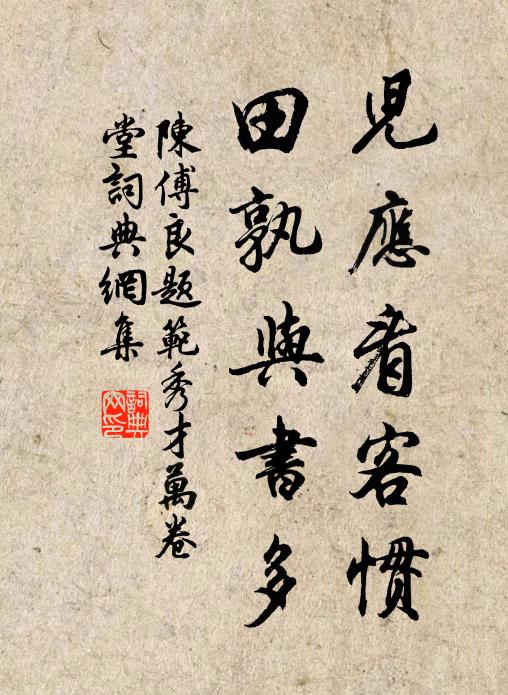 兒應看客慣
田孰與書多
陳傅良題範秀才萬卷
堂詞典網集
詞典
网印